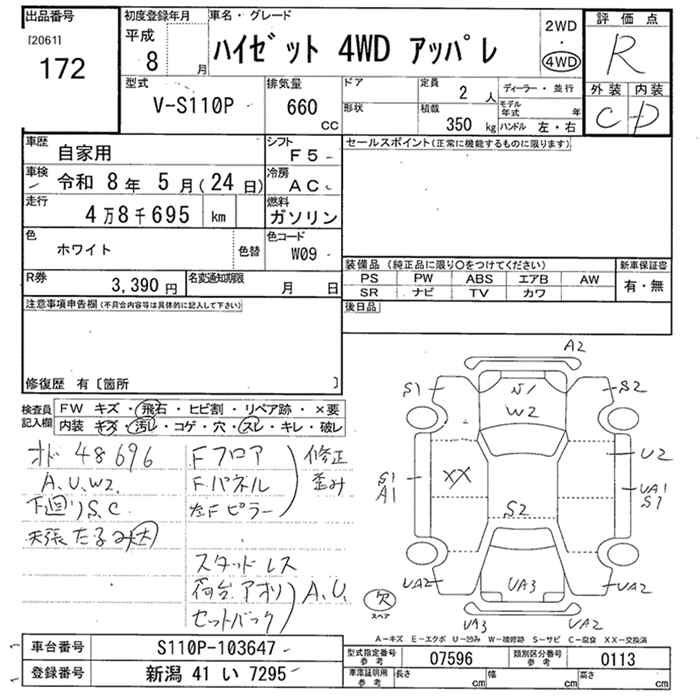 出品番号
[2061]
172
初度登録年月
平成
8 月
車名・グレード
ハイゼット 4WD アッパレ
2WD
・
4WD
評価点
R
外装 内装
C D
型式
V-S110P
排気量
660 cc
ドア
形状
定員
2 人
積載
350 kg
ディーラー・並行
モデル年式 年
ハンドル 左・右
車歴
自家用
シフト
F5
車検
令和 8年 5月(24日)
冷房
AC
走行
4万8千695 km
燃料
ガソリン
色
ホワイト
色替
色コード
W09
R券
3,390円
名変通知期限
月 日
セールスポイント(正常に機能するものに限ります)
装備品(純正品に限り○をつけてください)
PS PW ABS エアB AW
SR ナビ TV カワ
新車保証書
有・無
後日品
注意事項申告欄(不具合内容等は具体的に記入して下さい)
修復歴 有〔箇所 〕
検査員記入欄
FW キズ・飛石・ヒビ割・リペア跡・×要
内装 キズ・汚レ・コゲ・穴・スレ・キレ・破レ
オド 48696
A.U.W2.
下回りS.C
天張たるみ大
Fフロア
Fパネル
左Fピラー
修正
歪み
スタッドレス
荷台アオリ
セットバック
A.U.
A2
S1
S2
W2
U2
S1
A1
XX
UA1
S1
S2
UA2
UA3
UA2
UA3
UA2
欠
スペア
A-キズ E-エクボ U-凹み W-補修跡 S-サビ C-腐食 XX-交換済
車台番号
S110P-103647
登録番号
新潟 41 い 7295
型式指定番号
参考
07596
類別区分番号
参考
0113
車庫証明用
参考
長さ cm
幅 cm
高さ cm